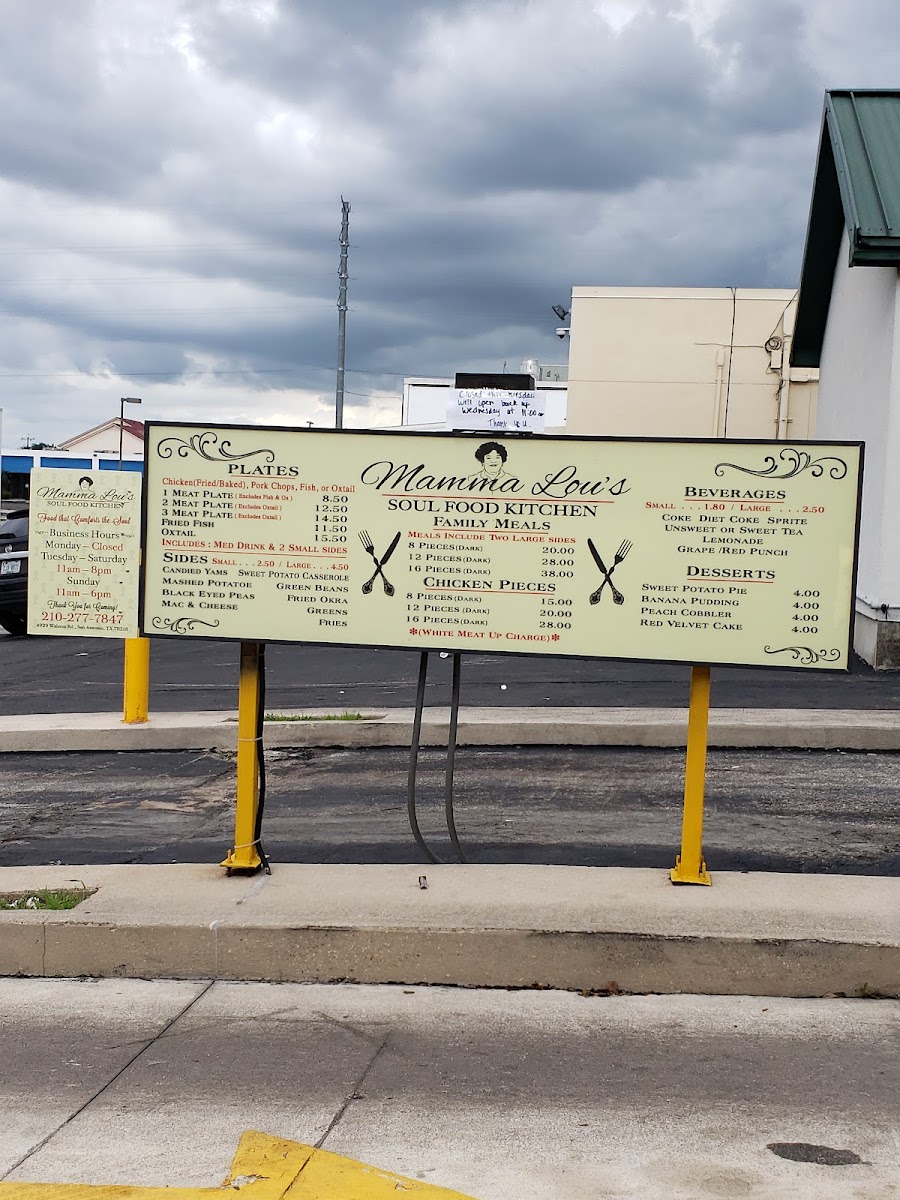 Closed this Tuesday
will open back up
Wednesday at 11:00 am
Thank you
Mamma Lou's
SOUL FOOD KITCHEN
Food that Comforts the Soul
Business Hours
Monday – Closed
Tuesday – Saturday
11am – 8pm
Sunday
11am – 6pm
Thank You for Coming!
210-277-7847
4929 Walzem Rd., San Antonio, TX 78218
PLATES
Chicken(Fried/Baked), Pork Chops, Fish, or Oxtail
1 MEAT PLATE (Excludes Fish & Ox) 8.50
2 MEAT PLATE (Excludes Oxtail) 12.50
3 MEAT PLATE (Excludes Oxtail) 14.50
FRIED FISH 11.50
OXTAIL 15.50
INCLUDES: MED DRINK & 2 SMALL SIDES
SIDES SMALL...2.50 / LARGE...4.50
CANDIED YAMS SWEET POTATO CASSEROLE
MASHED POTATOE GREEN BEANS
BLACK EYED PEAS FRIED OKRA
MAC & CHEESE GREENS
FRIES
Mamma Lou's
SOUL FOOD KITCHEN
FAMILY MEALS
MEALS INCLUDE TWO LARGE SIDES
8 PIECES(DARK) 20.00
12 PIECES(DARK) 28.00
16 PIECES(DARK) 38.00
CHICKEN PIECES
8 PIECES(DARK) 15.00
12 PIECES(DARK) 20.00
16 PIECES(DARK) 28.00
*(WHITE MEAT UP CHARGE)*
BEVERAGES
SMALL ...1.80 / LARGE ...2.50
COKE DIET COKE SPRITE
UNSWEET OR SWEET TEA
LEMONADE
GRAPE /RED PUNCH
DESSERTS
SWEET POTATO PIE 4.00
BANANA PUDDING 4.00
PEACH COBBLER 4.00
RED VELVET CAKE 4.00